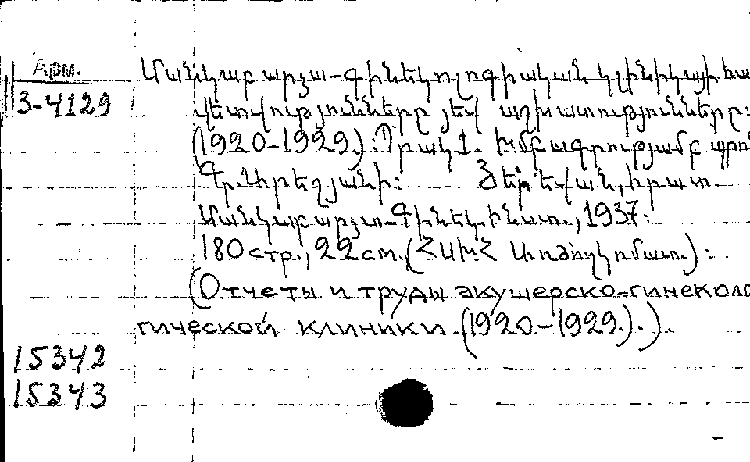 Арм.
3-4129
Մանկաբարձա-գինեկոլոգիական կլինիկայի հա
վետվությունները յեվ աշխատությունները:
(1920-1929). Պրակ 1. Խմբագրությամբ պրո
Գ. Արեշյանի: Յերևան, հրատ.
Մանկաբարձա-Գինեկ. ինստ., 1937:
180 стр., 22 см. (ՀՍԽՀ Առժողկոմատ):
(Отчеты и труды акушерско-гинеколо
гической клиники. (1920-1929).).
15342
15343